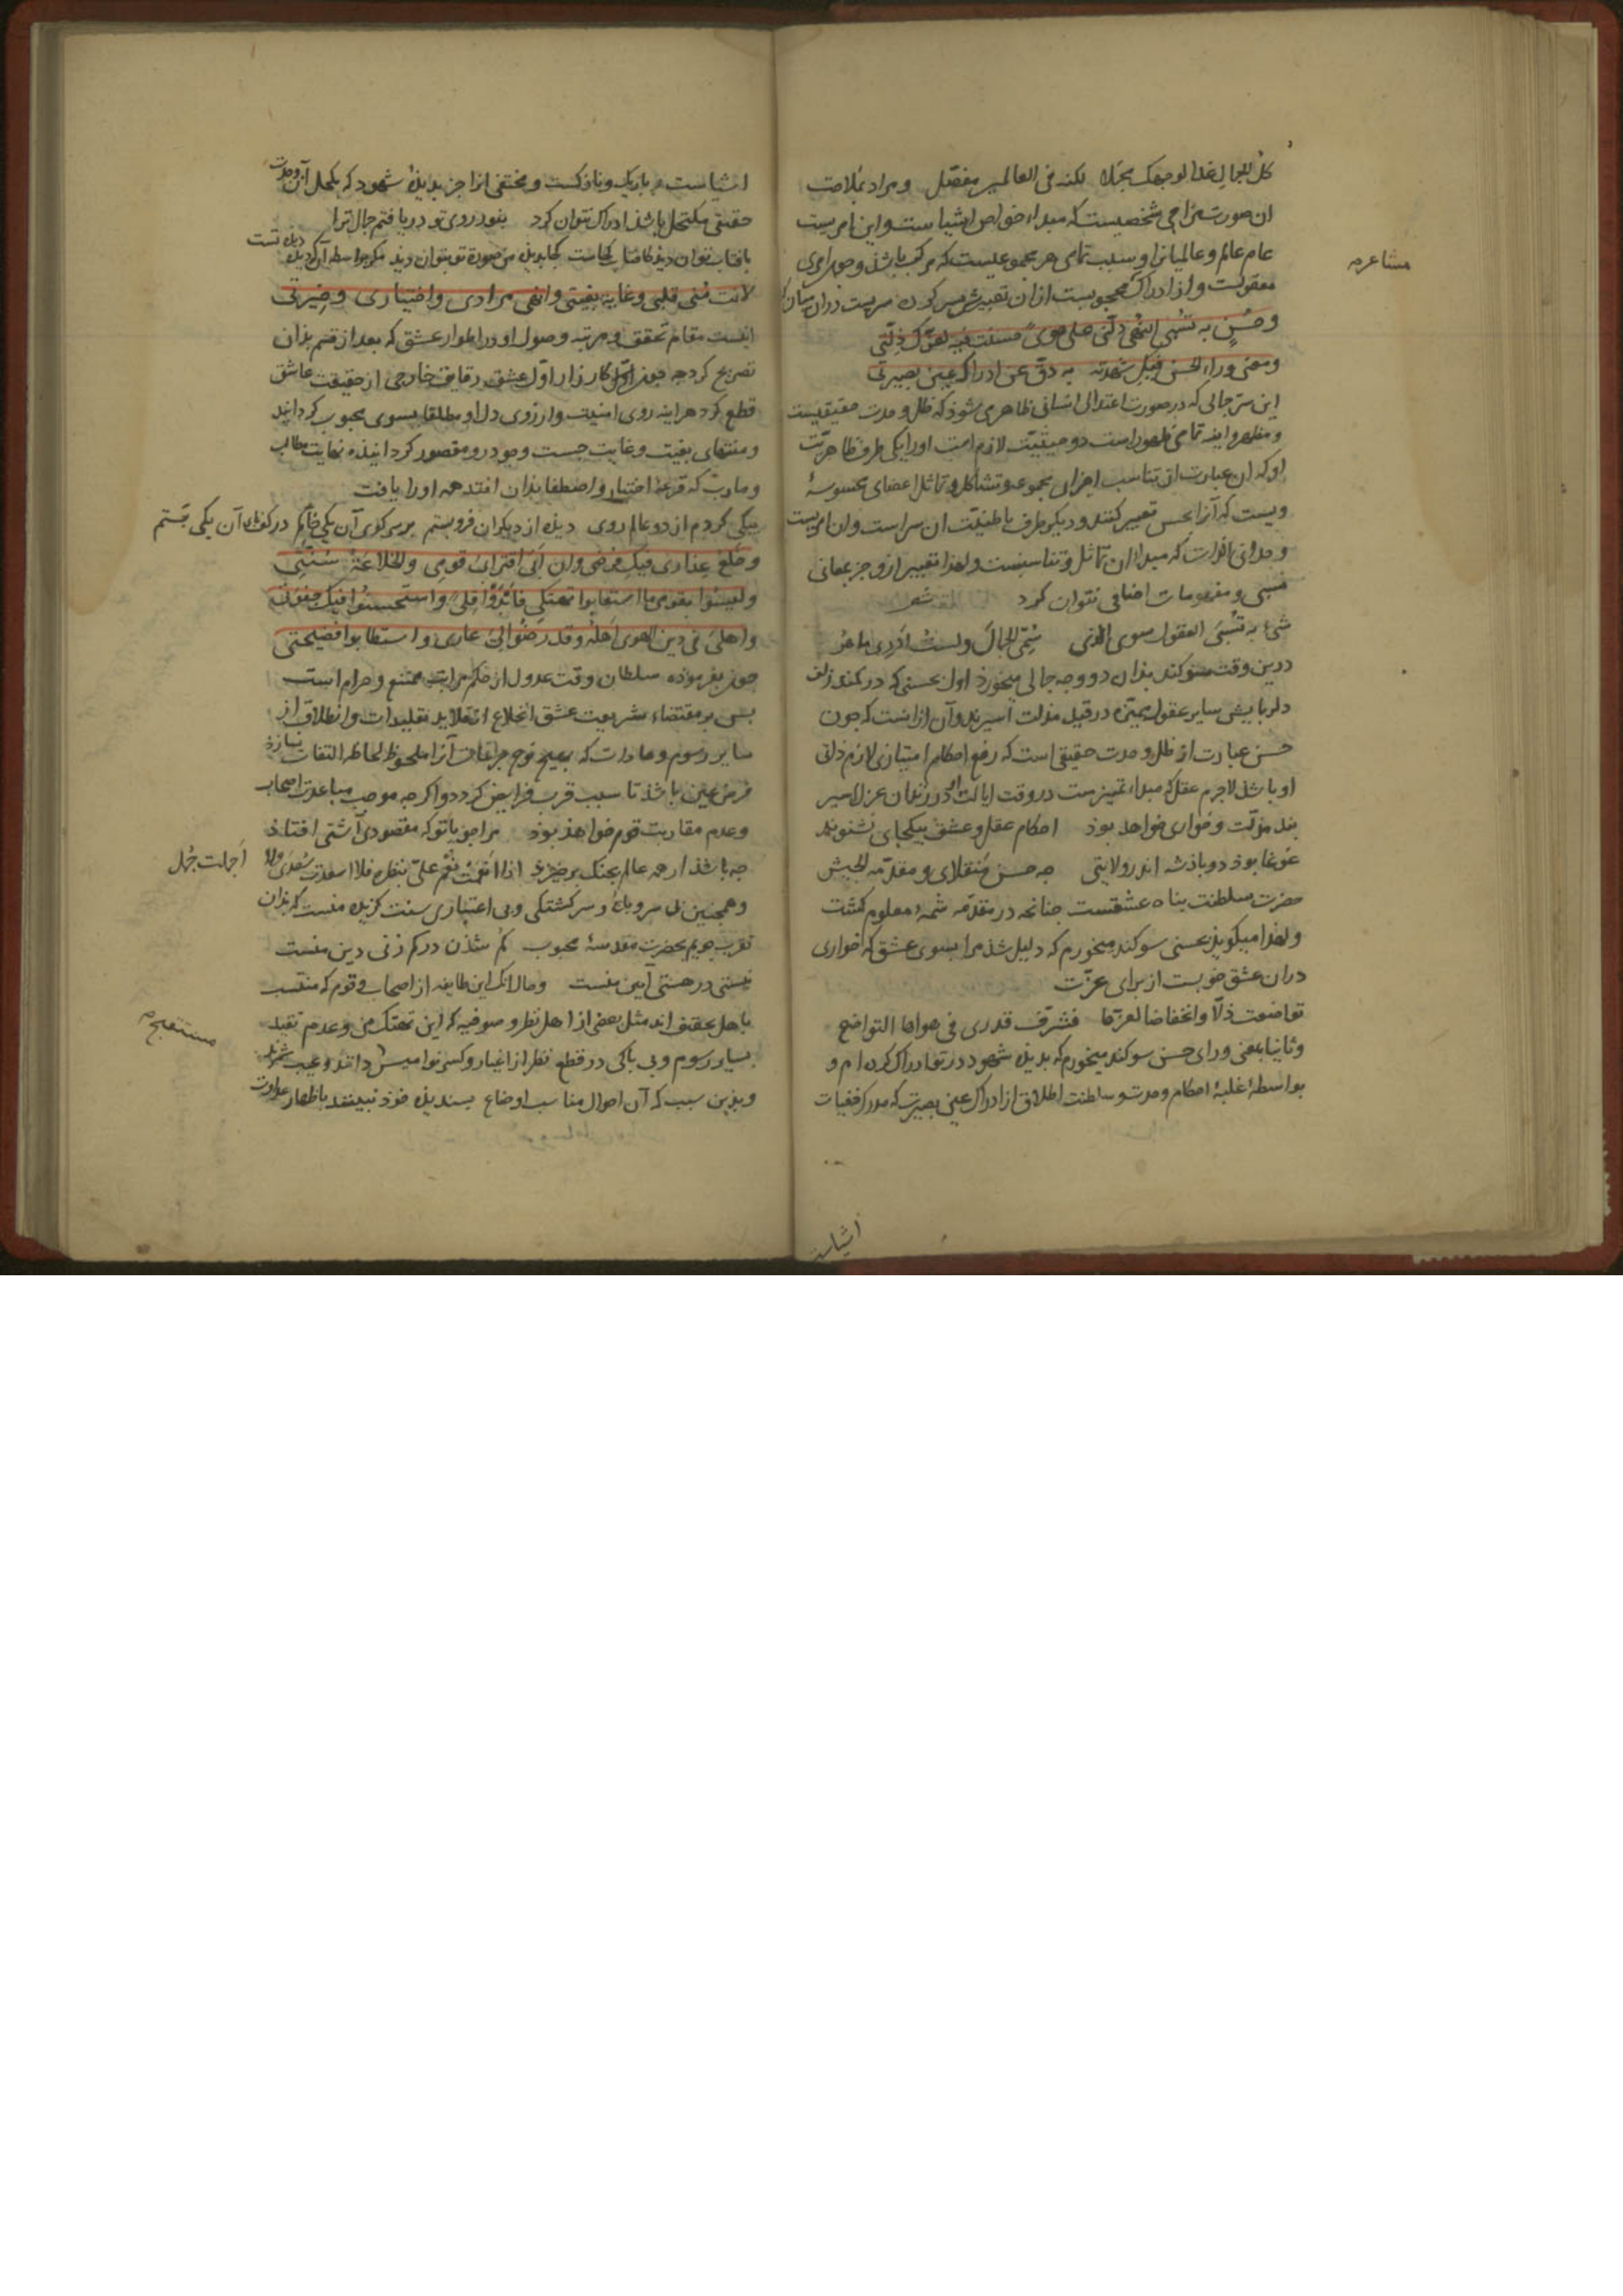 كل الجمال غدا لوجهك مجملا لكنه فی العالمین مفصل و مراد بملاحت
ان صورت مزاجی شخصیست که مبداء خواص اشیاست و این امریست
عام عالم و عالمیانرا و سبب تمامی هر مجموعیست که مرکب باشد و چون امری
معقولست و از ادراک محجوبست ازان تعبیرش بسر کرده سریست دران میان
مشاعر م
و حسن به تسبی النهی دلنی علی هوی حسنت فیه لعزک ذلتی
و معنی وراء الحسن فیک شهدته به دق عن ادراک عین بصیرتی
این سر جمالی که در صورت اعتدالی انسانی ظاهر می شوذ که ظل وحدت حقیقیست
و مظهر و اینه تمامی ظهور است دو حیثیت لازم است اورا یکی طرف ظاهریت
او که ان عبارت از تناسب اجزای مجموعه و تشاکل و تماثل اعضای محسوسهٔ
ویست که آنرا بحسن تعبیر کنند و دیکر طرف باطنیت ان سراست و ان امریست
وحدانی الذات که مبداء ان تماثل و تناسبست و لهذا تعبیر ازو جز بمعانی
نسبی و مفهومات اضافی نتوان کرد شعر
شیء به تسبی العقول سوی الذی سمی الجمال ولست ادری ما هو
درین وقت سوکند بذان دو وجه جمالی میخورذ اول بحسنی که در کمند زلف
دلربایش سایر عقول ممیزه در قید مذلت اسیرند و آن ازانست که چون
حسن عبارت از ظل وحدت حقیقی است که رفع احکام امتیازی لازم ذاتی
او باشد لاجرم عقل که مبداء تمییزست در وقت ایالت او در زندان عزل اسیر
بند مذلت و خواری خواهد بوذ احکام عقل و عشق بیکجای نشنوند
غوغا بوذ دو باذشه اندر ولایتی چه حسن منقلای و مقدمه الجیش
حضرت سلطنت بناه عشقست چنانچه در مقدمه شمهٔ معلوم کشت
و لهذا میکوید بحسنی سوکند میخورم که دلیل شد مرا بسوی عشق که خواری
دران عشق خوبست از برای عزت
تواضعت ذلا وانخفاضا لعزها فشرف قدری فی هواها التواضع
و ثانیا بمعنی ورای حسن سوکند میخورم که بدیذه شهود در تو ادراک کرده ام و
بواسطهٔ غلبهٔ احکام وحدت و سلطنت اطلاق از ادراک عین بصیرت که مدرک خفیات
اشیاست
اشیاست باریک و نازکست و مختفی انرا جز بدیذهٔ شهود که بکحل آن وحدت
حقیقی مکتحل باشد ادراک نتوان کرد بنور روی تو دریافتم جمال ترا
بافتاب توان دید کافتاب کجاست
لانت منی قلبی و غایة بغیتی و اقصی مرادی و اختیاری و خیرتی
اینست مقام تحقق و مرتبه وصول او در اطوار عشق که بعد از قسم بذان
تصریح کرد چه چون در اول کارزار اول عشق رقایق خارجی از حقیقت عاشق
قطع کرد هراینه روی امنیت و ارزوی دل او مطلقا بسوی محبوب کردانید
و منتهای بغیت و غایت جست و جو درو مقصور کردانیذه نهایت مطالب
و مآرب که قرعهٔ اختیار و اصطفا بذان افتد همه اورا یافت
یکی کردم از دو عالم روی دیذه از دیکران فروبستم بر سر کوی آن یکی خاکم در کف آن یکی بستم
و خلع عذاری فیک فرضی وان ابی اقترابی قومی والخلاعة سنتی
ولیسوا بقومی ما استعابوا تهتکی فابدوا قلی واستحسنوا فیک جفوتی
واهلی فی دین الهوی اهله وقد رضوا لی عاری واستطابوا فضیحتی
چون بفرموده سلطان وقت عدول از حکم مراتب ممتنع و حرام است
بس بر مقتضاء شریعت عشق انخلاع از قلاید تقلیدات و انطلاق از
سایر رسوم و عادات که بهیچ نوع مراعات آنرا ملحوظ لحاظه التفات نسازذ
فرض عین باشد تا سبب قرب فرایض کردد و اکرچه موجب مباعدت اصحاب
و عدم مقاربت قوم خواهذ بوذ مرا چو با تو که مقصودی آشتی افتاذ
چه باشد ار همه عالم بجنک برخیزد اذا انعمت نعم علی بنظرة فلا اسعدت سعدی ولا
اجملت جمل
و همچنین بی سر و پایی و سرکشتکی و بی اعتباری سنت کزیده منست که بذان
تقرب جویم بحضرت مقدسهٔ محبوب کم شدن در کم زنی دین منست
نیستی در هستی آیین منست و حالانک این طایفه از اصحاب و قوم که منتسب
باهل حقند مثل بعضی از اهل نظر و صوفیه که این تهتک من و عدم تقید
بسایر رسوم و بی باکی در قطع نظر از اغیار و کسر نوامیس دانند و عیب شمرند
مستقبح م
و بذین سبب که آن احوال مناسب اوضاع بسندیذه خوذ نبینند باظهار عداوت